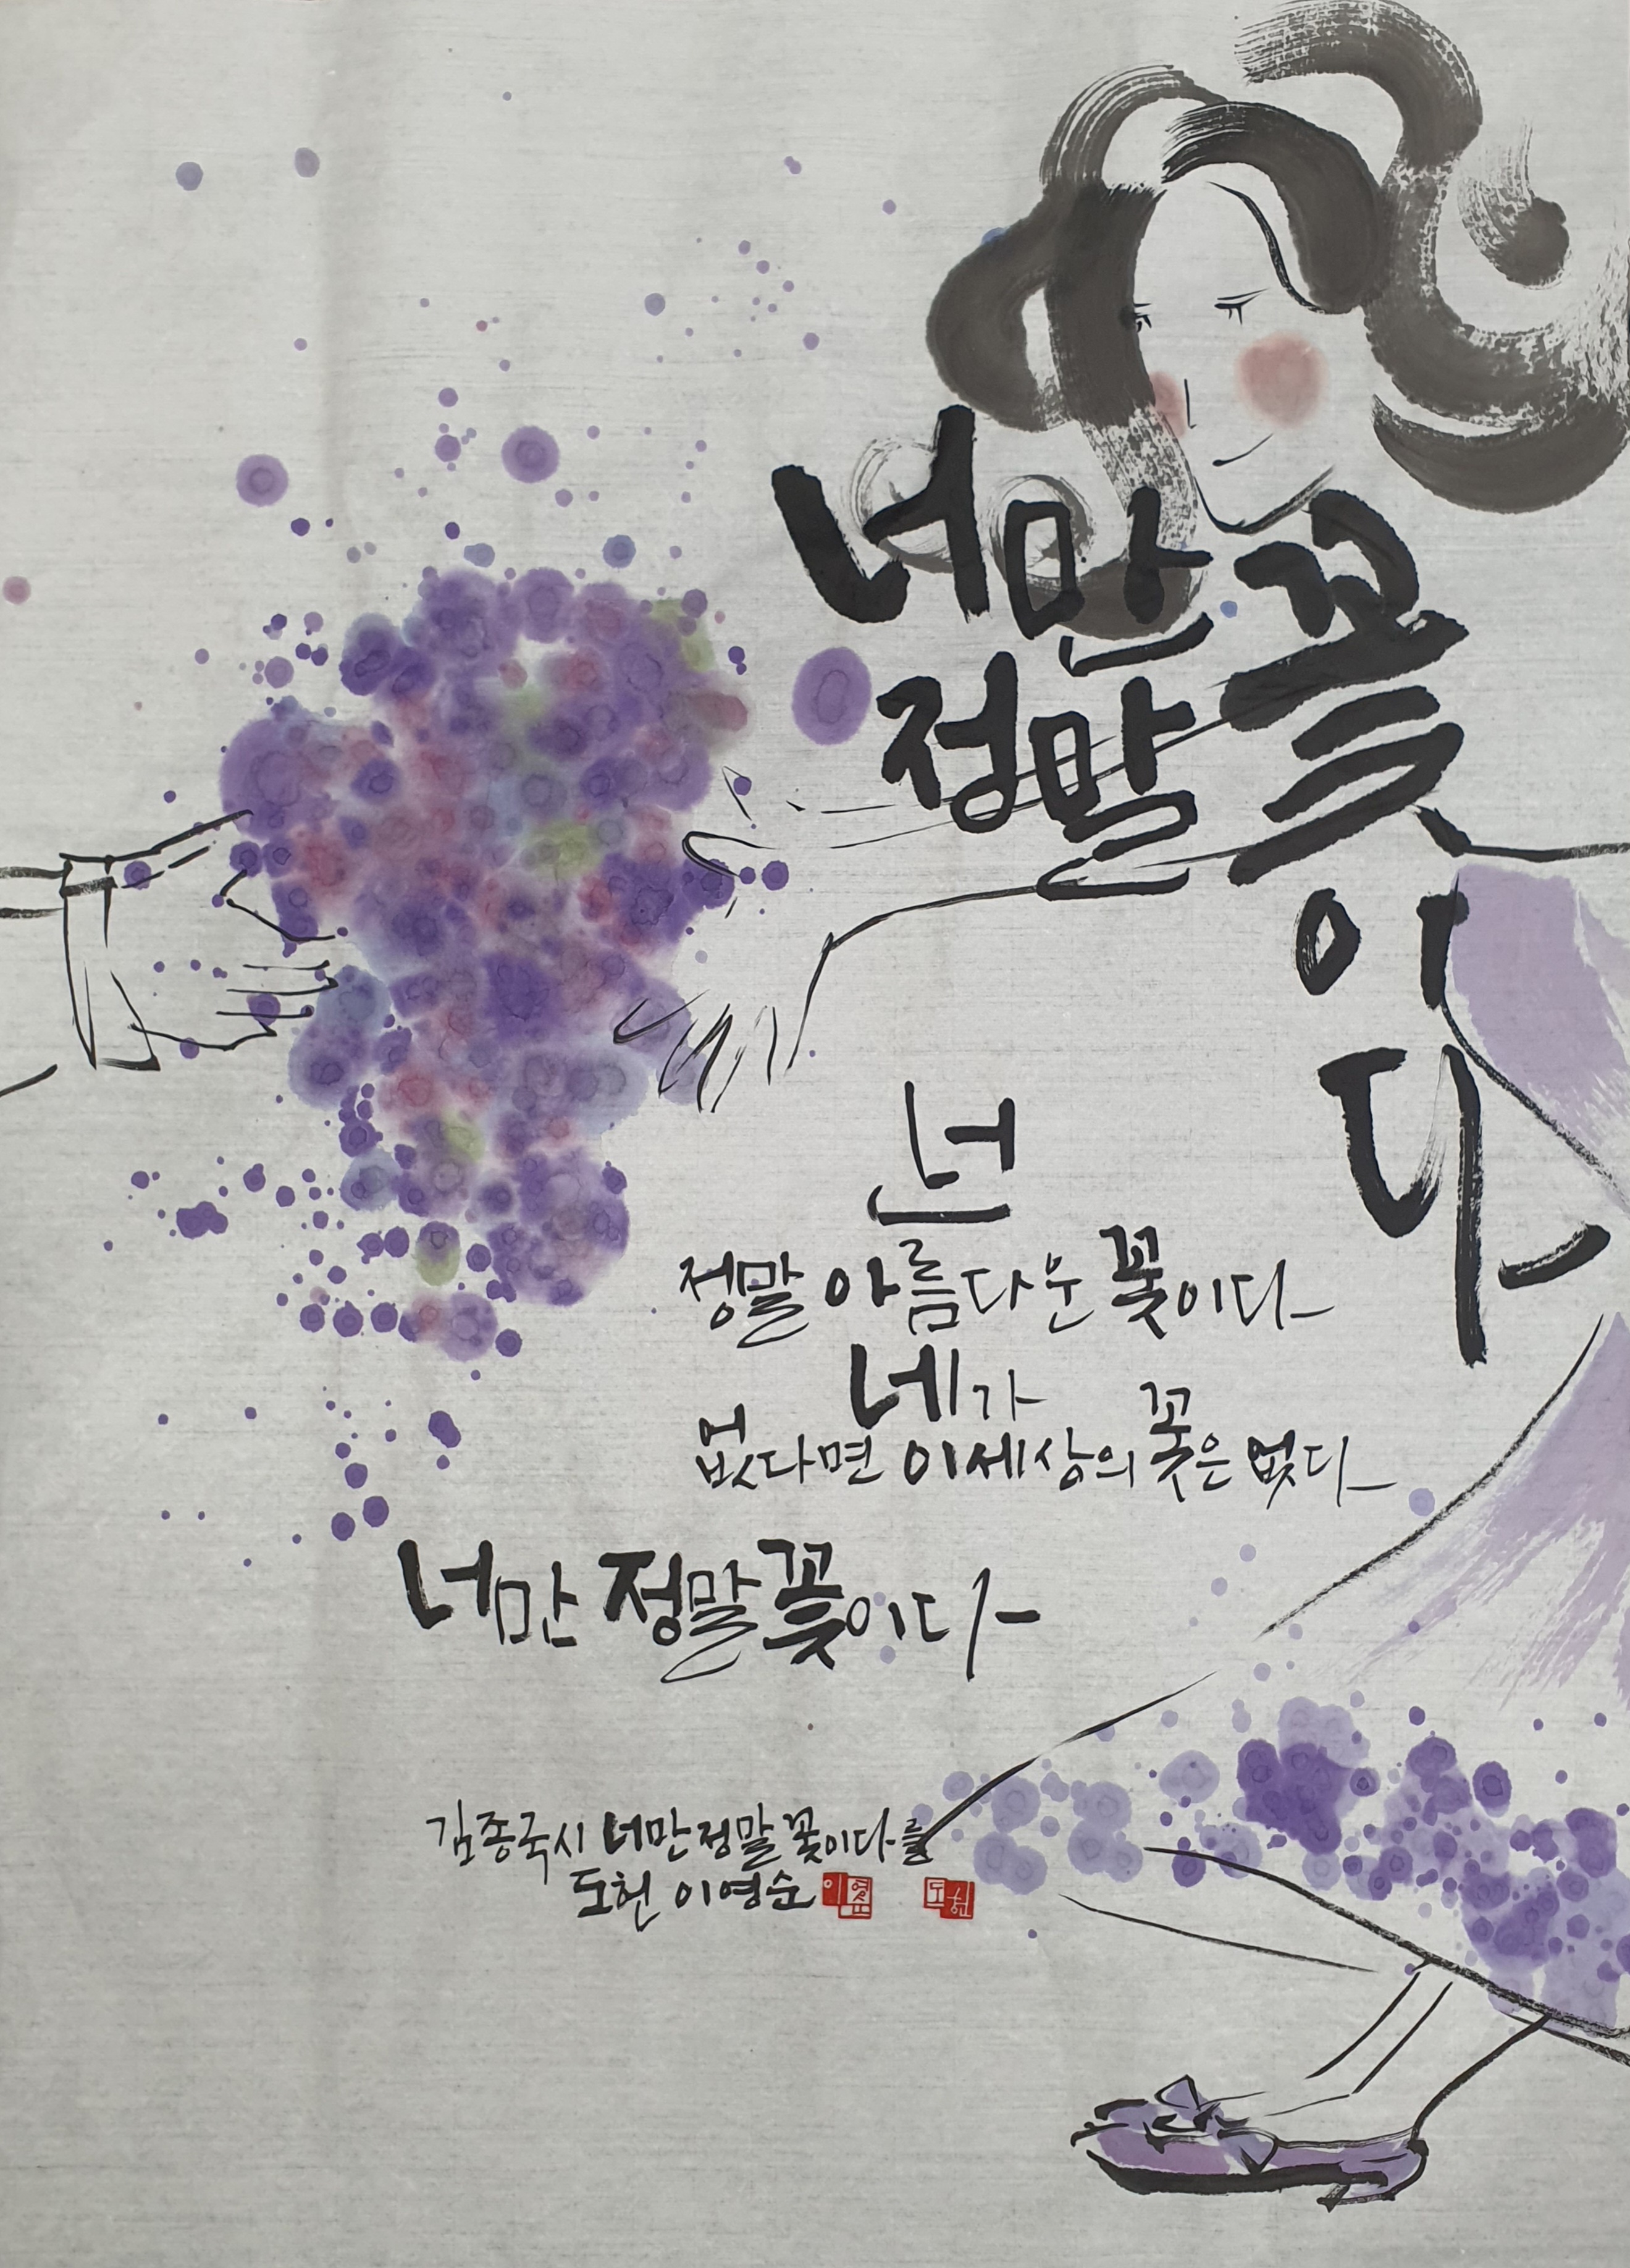 너만
정말
꽃이다
넌
정말 아름다운 꽃이다
네가
없다면 이세상의 꽃은 없다
너만 정말 꽃이다
김종국시 너만 정말 꽃이다를
도헌 이영순